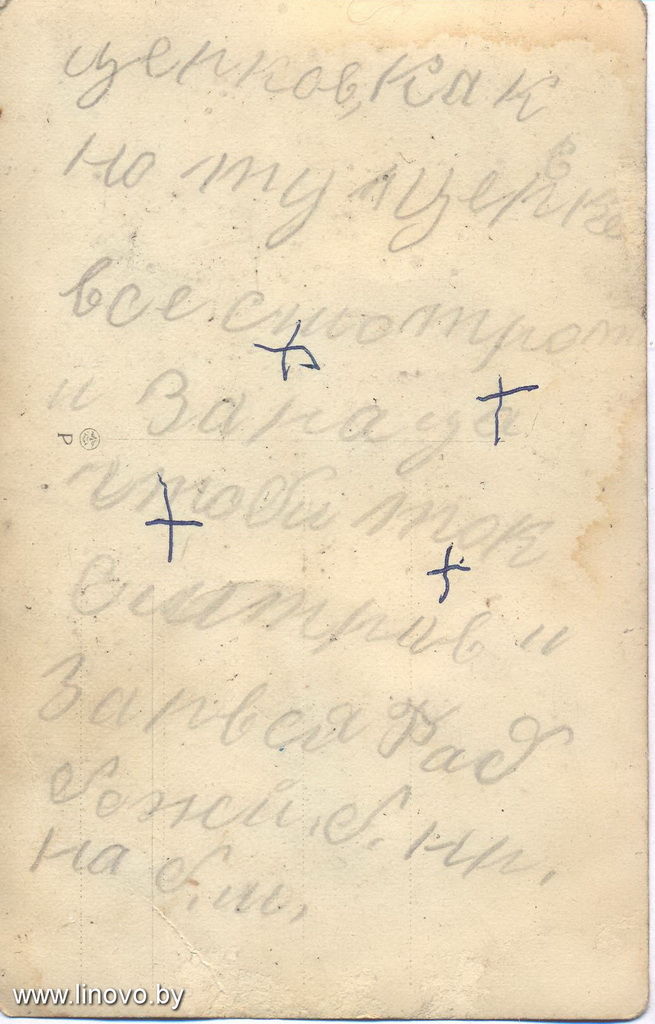 церков, как
но ту церкве
все смотрат
и запада
чтоби ток
смотрив и
запвся Раб
божй. б. нр.
на б. м.
P
www.linovo.by